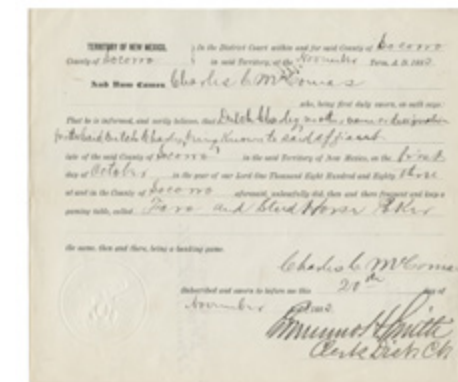 TERRITORY OF NEW MEXICO, In the District Court within and for said County of Socorro
County of Socorro in said Territory, of the November Term, A.D. 1883
And Now Comes Charles C. McComas
who, being first duly sworn, on oath says:
That he is informed, and verily believes, that Dutch Charley
Dutch Charley, being known to said affiant
late of the said County of Socorro in the said Territory of New Mexico, on the first
day of October in the year of our Lord One Thousand Eight Hundred and Eighty three
at and in the County of Socorro aforesaid, unlawfully did, then and there frequent and keep a
gaming table, called Faro and Stud Horse Poker
the same, then and there, being a banking game.
Charles C. McComas
Subscribed and sworn to before me this 20th day of
November 1883.
Smith
Clerk Dist. Ct.